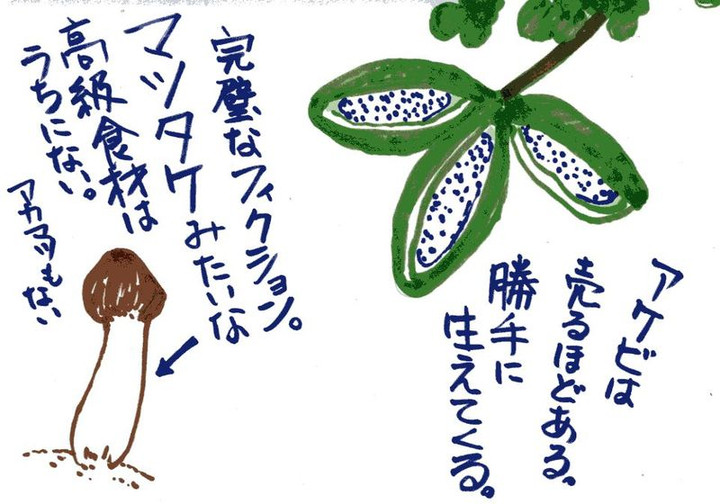 アケビは
売るほどある。
勝手に
生えてくる。
完璧なフィクション。
マツタケみたいな
高級食材は
うちにない。
アカマツもない